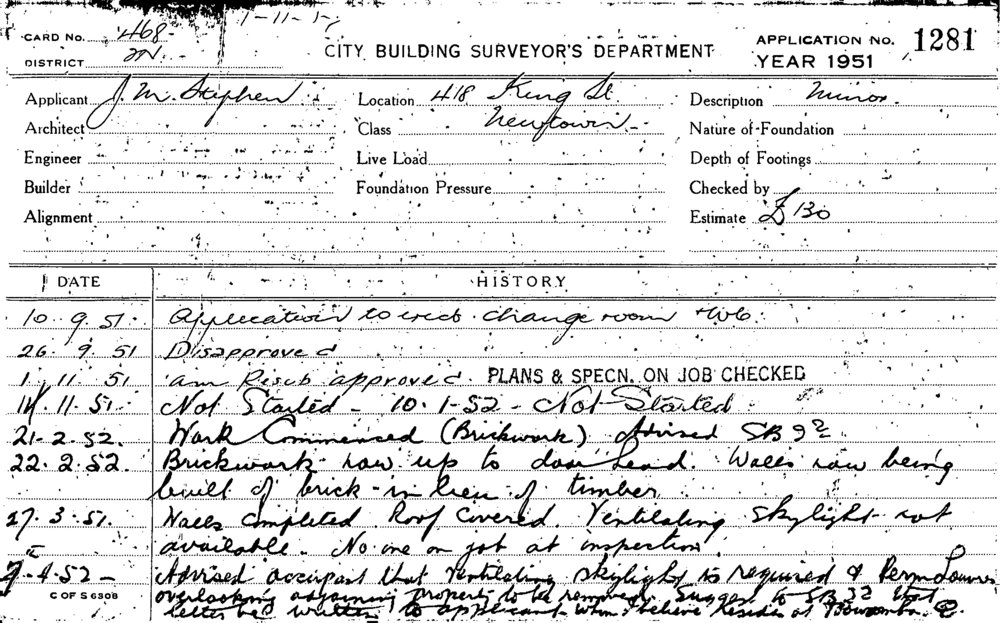 1-11-1
CARD No. 468
DISTRICT 2N.
CITY BUILDING SURVEYOR'S DEPARTMENT
APPLICATION No. 1281
YEAR 1951
Applicant J. M. Stephen
Location 418 King St.
Description Minor.
Architect
Class Newtown
Nature of Foundation
Engineer
Live Load
Depth of Footings
Builder
Foundation Pressure
Checked by
Alignment
Estimate £130
DATE
HISTORY
10. 9. 51. Application to erect change room
26. 9. 51 Disapproved
1. 11. 51 approved. PLANS & SPECN. ON JOB CHECKED
11. 51. Not Started - 10. 1-52 - Not Started
21-2.52. Work Commenced (Brickwork) Advised SB
22. 2.52. Brickwork now up to door head. Walls now being
built of brick in lieu of timber
27. 3. 51. Walls completed. Roof covered. Ventilating skylight not
available. No one on job at inspection.
4-52- Advised occupant that ventilating skylight is required & Perm Louvres
C OF S 6308
overlooking adjoining property to be removed. Suggest to SB 32 that
letter be written to applicant whom I believe resides at